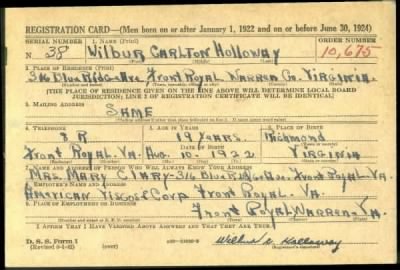 REGISTRATION CARD—(Men born on or after January 1, 1922 and on or before June 30, 1924)
SERIAL NUMBER 1. NAME (Print) ORDER NUMBER
N 38 Wilbur Carlton Holloway 10,675
2. PLACE OF RESIDENCE (Print)
316 Blue Ridge Ave Front Royal Warren Co. Virginia
[THE PLACE OF RESIDENCE GIVEN ON THE LINE ABOVE WILL DETERMINE LOCAL BOARD
JURISDICTION; LINE 2 OF REGISTRATION CERTIFICATE WILL BE IDENTICAL]
3. MAILING ADDRESS
SAME
4. TELEPHONE 5. AGE IN YEARS 6. PLACE OF BIRTH
8 R 19 Years. Richmond
DATE OF BIRTH
Front Royal. Va. Aug. 10. 1922 Virginia
7. NAME AND ADDRESS OF PERSON WHO WILL ALWAYS KNOW YOUR ADDRESS
Mrs. Mary 316 Blue Ridge Ave. Front Royal Va.
8. EMPLOYER'S NAME AND ADDRESS
American Viscose Corp Front Royal. Va.
9. PLACE OF EMPLOYMENT OR BUSINESS
Front Royal Warren. Va.
I AFFIRM THAT I HAVE VERIFIED ABOVE ANSWERS AND THAT THEY ARE TRUE.
D. S. S. Form 1 Wilbur C. Holloway